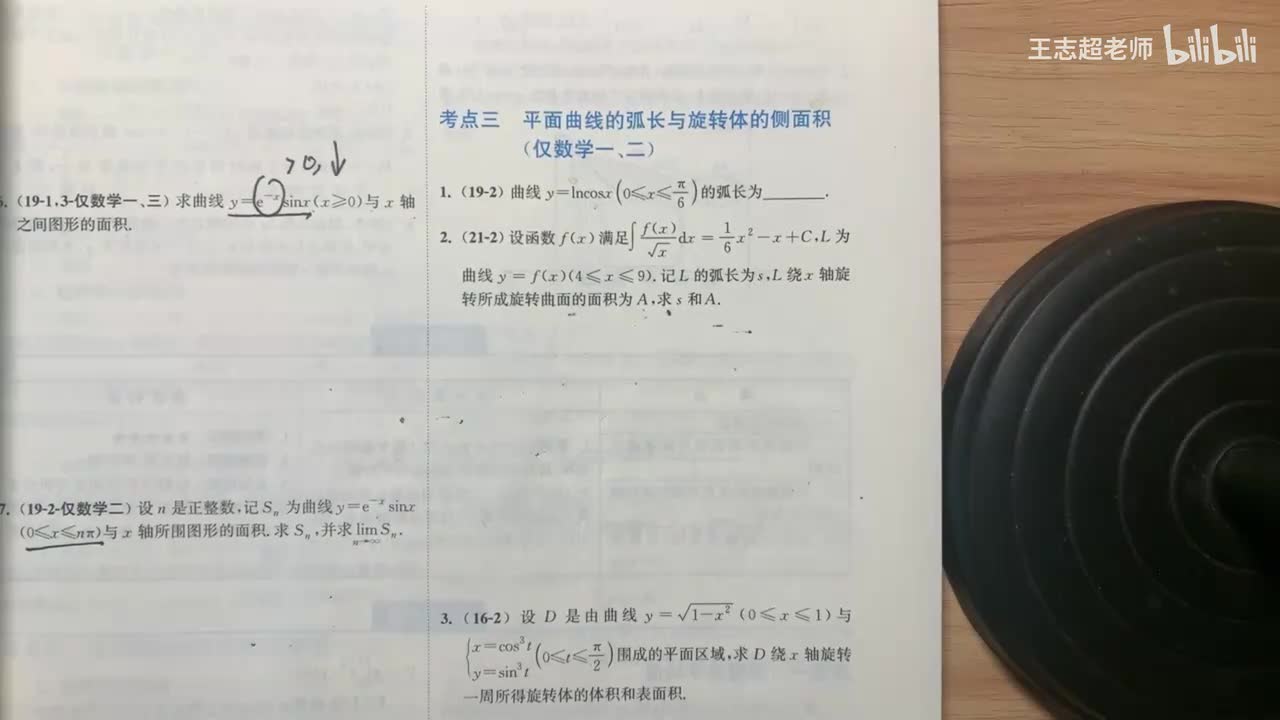 王志超老师 bilibili
>0,↓
6.(19-1,3-仅数学一、三)求曲线 y=e^{-x}sinx(x⩾0)与 x 轴
之间图形的面积.
7.(19-2-仅数学二)设 n 是正整数,记 S_n 为曲线 y=e^{-x} sinx
(0⩽x⩽nπ)与 x 轴所围图形的面积.求 S_n,并求 lim_{n→∞} S_n.
考点三 平面曲线的弧长与旋转体的侧面积
(仅数学一、二)
1.(19-2)曲线 y=lncosx(0⩽x⩽π/6)的弧长为______.
2.(21-2)设函数 f(x)满足∫f(x)/√x dx=1/6 x²-x+C,L 为
曲线 y=f(x)(4⩽x⩽9).记 L 的弧长为 s,L 绕 x 轴旋
转所成旋转曲面的面积为 A,求 s 和 A.
3.(16-2)设 D 是由曲线 y=√(1-x²)(0⩽x⩽1)与
{x=cos³t
y=sin³t (0⩽t⩽π/2)围成的平面区域,求 D 绕 x 轴旋转
一周所得旋转体的体积和表面积.